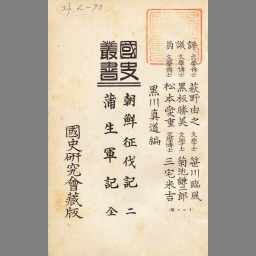 評議員
文學博士 萩野由之 文學士 笹川臨風
文學博士 黒板勝美 文學士 菊池謙二郎
文學博士 松本愛重 文學博士 三宅米吉
黒川眞道編
國史叢書
朝鮮征伐記 二
蒲生軍記 全
國史研究會藏版